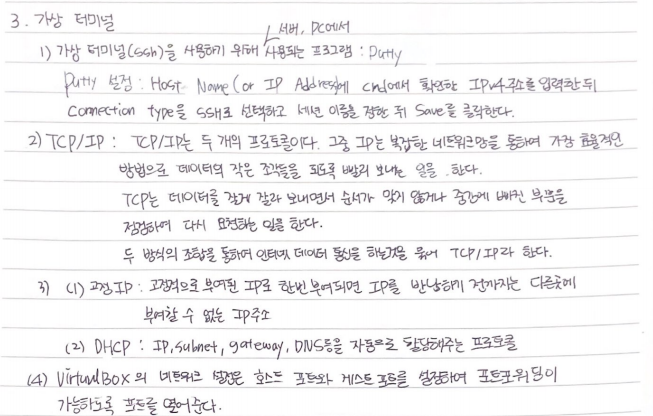 3. 가상 터미널
서버, PC에서
1) 가상 터미널(ssh)을 사용하기 위해 사용되는 프로그램 : Putty
putty 설정 : Host Name (or IP Address)에 cmd에서 확인한 IPv4주소를 입력한 뒤
Connection type을 SSH로 선택하고 세션 이름을 정한 뒤 Save를 클릭한다.
2) TCP/IP : TCP/IP는 두 개의 프로토콜이다. 그중 IP는 복잡한 네트워크망을 통하여 가장 효율적인
방법으로 데이터의 작은 조각들을 되도록 빨리 보내는 일을 한다.
TCP는 데이터를 잘게 잘라 보내면서 순서가 맞지 않거나 중간에 빠진 부분을
점검하여 다시 요청하는 일을 한다.
두 방식의 조합을 통하여 인터넷 데이터 통신을 하는것을 묶어 TCP/IP라 한다.
3) (1) 고정IP : 고정적으로 부여된 IP로 한번 부여되면 IP를 반납하기 전까지는 다른곳에
부여할 수 없는 IP주소
(2) DHCP : IP, subnet, gateway, DNS등을 자동으로 할당해주는 프로토콜
(4) VirtualBox의 네트워크 설정은 호스트 포트와 게스트 포트를 설정하여 포트포워딩이
가능하도록 포트를 열어준다.